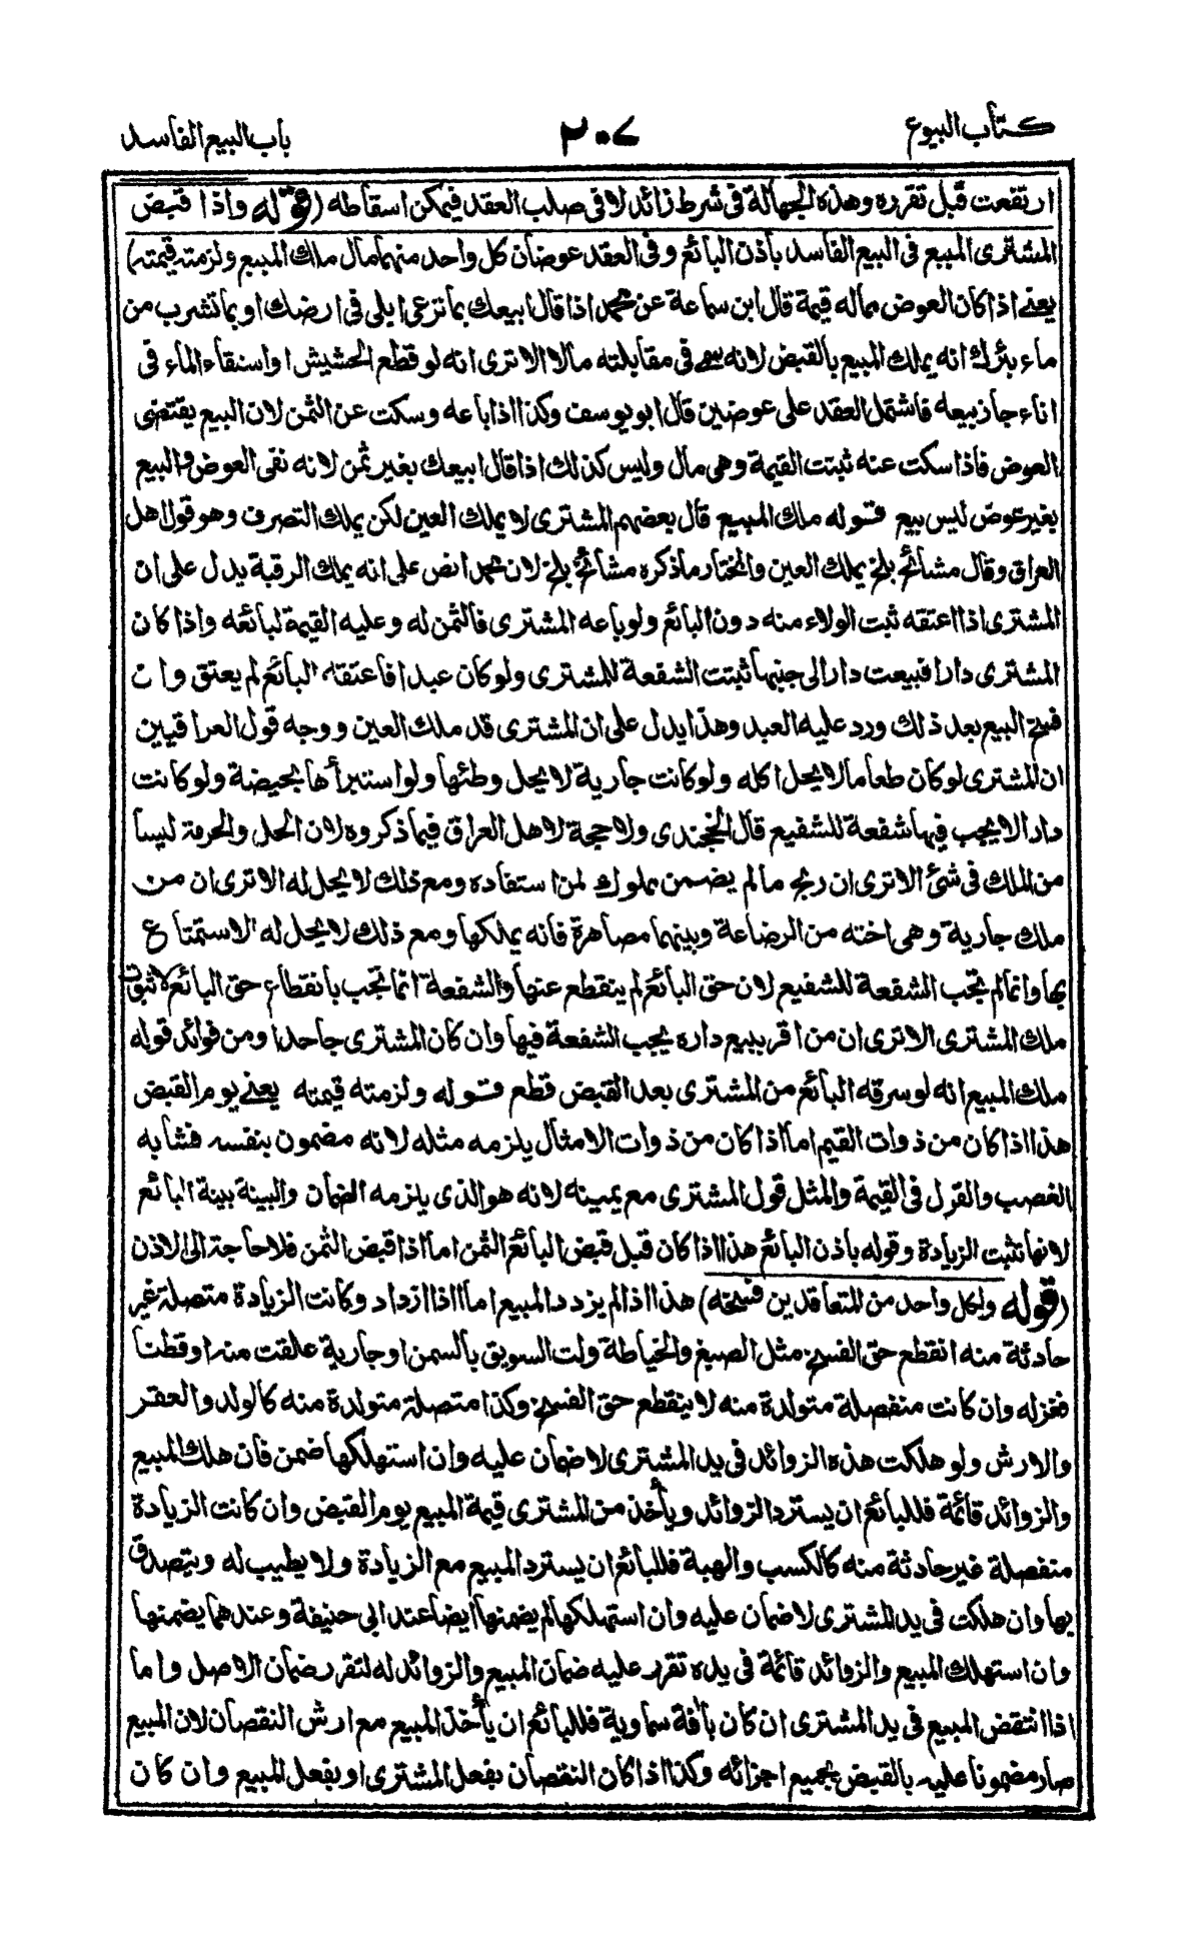 كتاب البيوع
٢٠٧
باب البيع الفاسد
ارتفعت قبل تقرره وهذه الجهالة فى شرط زائد لا فى صلب العقد فيمكن اسقاطه (قوله واذا قبض
المشترى المبيع فى البيع الفاسد باذن البائع وفى العقد عوضان كل واحد منهما مال ملك المبيع ولزمته قيمته)
يعنے اذا كان العوض مماله قيمة قال ابن سماعة عن محمد اذا قال ابيعك بما ترعى ابلى فى ارضك او بما تشرب من
ماء بئرك انه يملك المبيع بالقبض لانه سمے فى مقابلته مالا الا ترى انه لو قطع الحشيش او استقاء الماء فى
اناء جاز بيعه فاشتمل العقد على عوضين قال ابو يوسف وكذا اذا باعه وسكت عن الثمن لان البيع يقتضى
العوض فاذا سكت عنه ثبتت القيمة وهى مال وليس كذلك اذا قال ابيعك بغير ثمن لانه نفى العوض والبيع
بغير عوض ليس بيع قوله ملك المبيع قال بعضهم المشترى لا يملك العين لكن يملك التصرف وهو قول اهل
العراق وقال مشائخ بلخ يملك العين والمختار ما ذكره مشائخ بلخ لان محمدا نص على انه يملك الرقبة يدل على ان
المشترى اذا اعتقه ثبت الولاء منه دون البائع ولو باعه المشترى فالثمن له وعليه القيمة لبائعه واذا كان
المشترى دارا فبيعت دار الى جنبها ثبتت الشفعة للمشترى ولو كان عبدا فاعتقه البائع لم يعتق وان
فسخ البيع بعد ذلك ورد عليه العبد وهذا يدل على ان المشترى قد ملك العين ووجه قول العراقيين
ان المشترى لو كان طعاما لا يحل اكله ولو كانت جارية لا يحل وطئها ولو استبرأها بحيضة ولو كانت
دارا لا يجب فيها شفعة للشفيع قال الخجندى ولا حجة لاهل العراق فيما ذكروه لان الحل والحرمة ليسا
من الملك فى شئ الا ترى ان ربح مالم يضمن مملوك لمن استفاده ومع ذلك لا يحل له الا ترى ان من
ملك جارية وهى اخته من الرضاعة وبينهما مصاهرة فانه يملكها ومع ذلك لا يحل له الاستمتاع
بها وانما لم تجب الشفعة للشفيع لان حق البائع لم ينقطع عنها والشفعة انما تجب بانقطاع حق البائع لا بثبوت
ملك المشترى الا ترى ان من اقر ببيع داره يجب الشفعة فيها وان كان المشترى جاحدا ومن فوائد قوله
ملك المبيع انه لو سرقه البائع من المشترى بعد القبض قطع قوله ولزمته قيمته يعنے يوم القبض
هذا اذا كان من ذوات القيم اما اذا كان من ذوات الامثال يلزمه مثله لانه مضمون بنفسه فشابه
الغصب والقول فى القيمة والمثل قول المشترى مع يمينه لانه هو الذى يلزمه الضمان والبينة بينة البائع
لانها تثبت الزيادة وقوله باذن البائع هذا اذا كان قبل قبض البائع الثمن اما اذا قبض الثمن فلا حاجة الى الاذن
(قوله ولكل واحد من المتعاقدين فسخه) هذا اذا لم يزدد المبيع اما اذا ازداد وكانت الزيادة متصلة غير
حادثة منه انقطع حق الفسخ مثل الصبغ والخياطة ولت السويق بالسمن او جارية علقت منه او قطنا
فغزله وان كانت منفصلة متولدة منه لا ينقطع حق الفسخ وكذا متصلة متولدة منه كالولد والعقر
والارش ولو هلكت هذه الزوائد فى يد المشترى لا ضمان عليه وان استهلكها ضمن فان هلك المبيع
والزوائد قائمة فللبائع ان يسترد الزوائد ويأخذ من المشترى قيمة المبيع يوم القبض وان كانت الزيادة
منفصلة غير حادثة منه كالكسب والهبة فللبائع ان يسترد المبيع مع الزيادة ولا يطيب له ويتصدق
بها وان هلكت فى يد المشترى لا ضمان عليه وان استهلكها لم يضمنها ايضا عند ابى حنيفة وعندهما يضمنها
وان استهلك المبيع والزوائد قائمة فى يده تقرر عليه ضمان المبيع والزوائد له لتقرر ضمان الاصل واما
اذا انتقض المبيع فى يد المشترى ان كان بافة سماوية فللبائع ان يأخذ المبيع مع ارش النقصان لان المبيع
صار مضمونا عليه بالقبض بجميع اجزائه وكذا اذا كان النقصان بفعل المشترى او بفعل المبيع وان كان